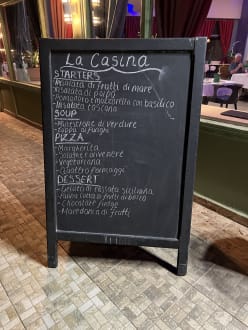 La Casina
STARTERS
-Insalata di frutti di mare
-Insalata di polpo
-Pomodoro e mozzarella con basilico
-Insalata toscana
SOUP
-Minestrone di verdure
-Zuppa di funghi
PIZZA
-Margherita
-Salame
-Vegetariana
-Quattro formaggi
DESSERT
-Gelato di cassata siciliana
-Panna cotta frutti di bosco
-Chocolate fudge
-Macedonia di frutti